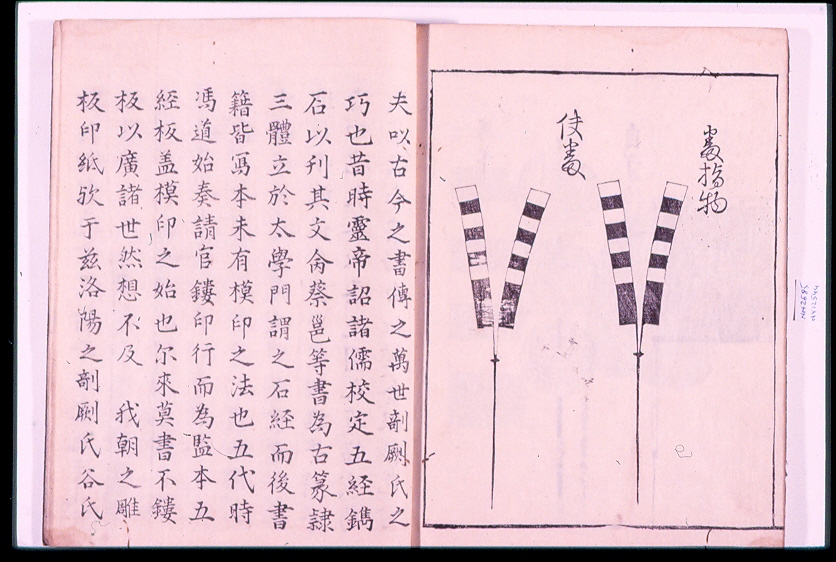 番指物
使番
夫㕥古今之書傳之萬世剞劂氏之
巧也昔時靈帝詔諸儒校定五經鐫
石以刊其文命蔡邕等書為古篆隷
三體立於太學門謂之石經而後書
籍皆冩本未有模印之法也五代時
馮道始奏請官鏤印行而為監本五
經板盖模印之始也尔來莫書不鏤
板以廣諸世然想不及　我朝之雕
板印紙欤于兹洛陽之剞劂氏谷氏